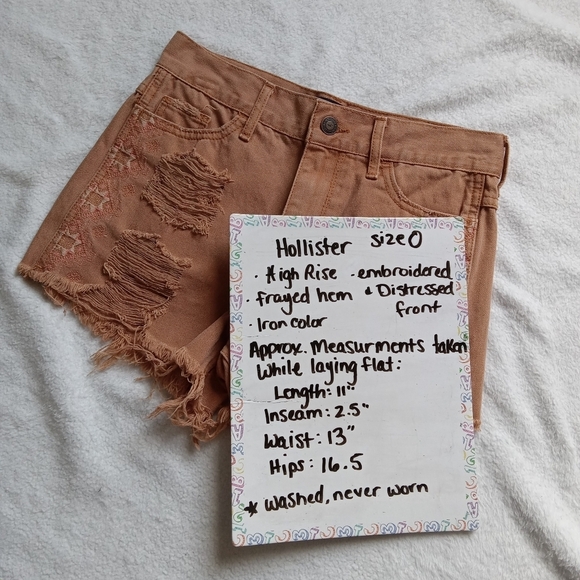 Hollister size 0
· High Rise · embroidered
frayed hem & Distressed
front
· Iron color
Approx. Measurments taken
While laying flat:
Length: 11"
Inseam: 2.5"
Waist: 13"
Hips: 16.5
* washed, never worn